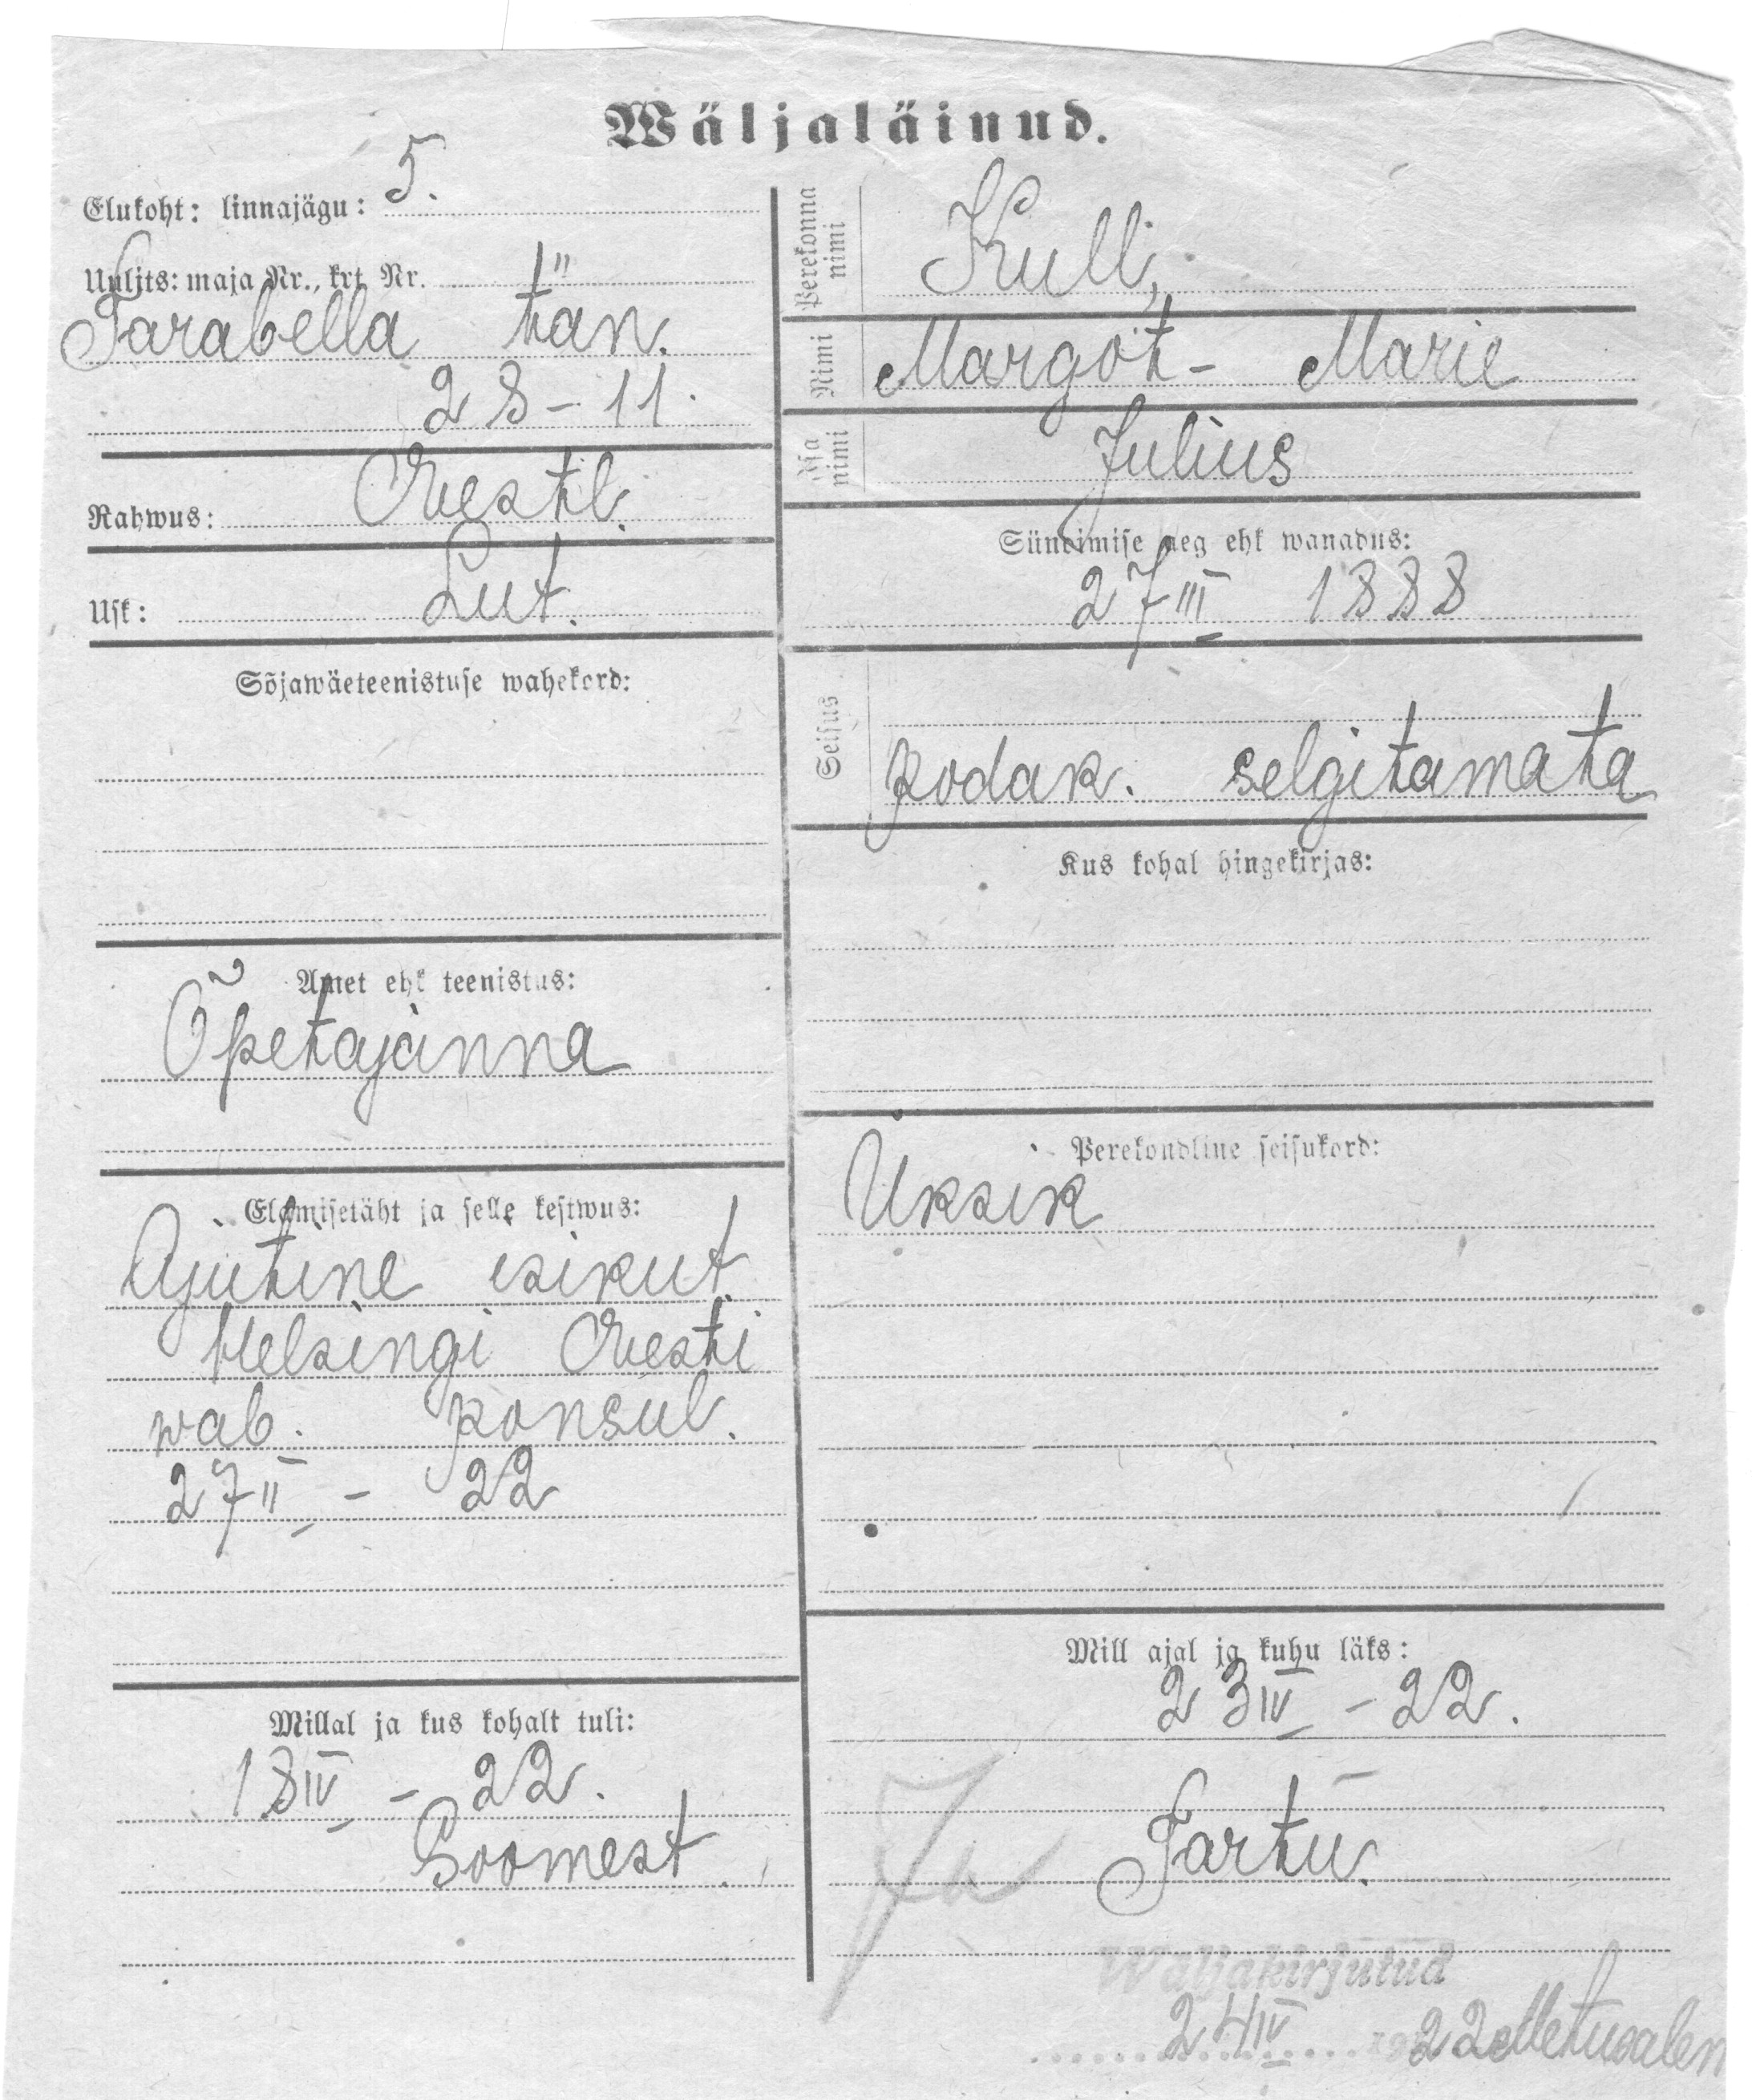 Wäljaläinud.
Elukoht: linnajägu: 5.
Uulits: maja Nr., krt. Nr.
Parabella tän.
28-11.
Rahwus: Eestl.
Usk: Lut.
Sõjawäeteenistuse wahekord:
Amet ehk teenistus:
Õpetajanna
Elamisetäht ja selle kestwus:
Ajutine isikut.
Helsingi Eesti
wab. konsul.
27 II - 22
Millal ja kus kohalt tuli:
18 IV - 22.
Soomest.
Perekonna nimi
Kull,
Nimi
Margöt- Marie
Isa nimi
Julius
Sündimise aeg ehk wanadus:
27 III 1888
Seisus
Kodak. selgitamata
Kus kohal hingekirjas:
Perekondline seisukord:
Üksik
Mill ajal ja kuhu läks:
23 IV - 22.
Tartu.
Ja
Wäljakirjutud
24 IV 22 Metusalem